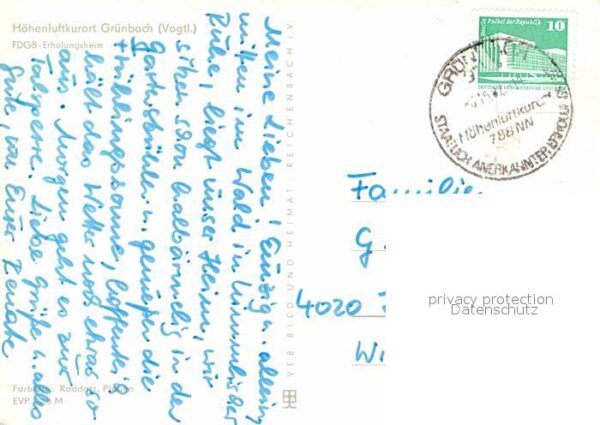 Höhenluftkurort Grünbach (Vogtl.)
FDGB-Erholungsheim
Meine Lieben! Einzig u. allein
mitten im Wald in himmlischer
Ruhe, liegt unser Heim, wir
sitzen schon halbärmlig in der
Gartenstühlen u. genießen die
Frühlingssonne, hoffentlich
hält das Wetter noch etwas so
aus. Morgen geht es zur
Talsperre. Liebe Grüße u. alles
Gute, von Eurer Renate
Farbfoto: Raddatz,
EVP M
VEB BILD UND HEIMAT REICHENBACH i. V.
Berlin, Palast der Republik
10
GRÜN
Höhenluftkurort
788 NN
STAATLICH ANERKANNTER ERHOLUNGS
Familie
G.
4020
W
privacy protection
Datenschutz